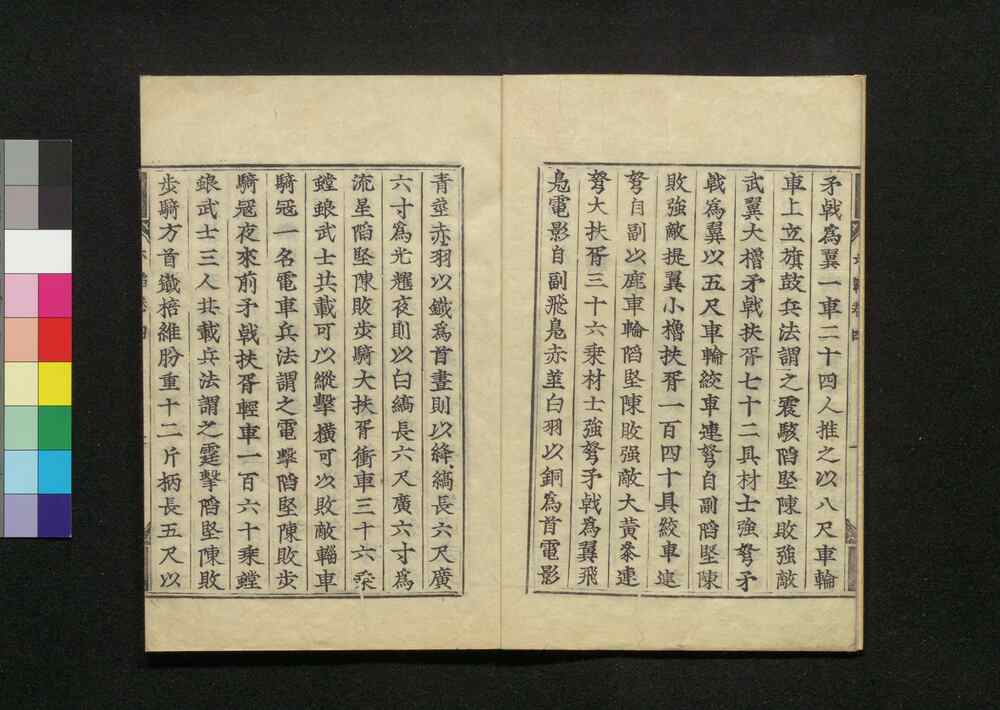 矛戟爲翼一車二十四人推之以八尺車輪
車上立旗鼓兵法謂之震駭陷堅陳敗強敵
武翼大櫓矛戟扶胥七十二具材士強弩矛
戟爲翼以五尺車輪絞車連弩自副陷堅陳
敗強敵提翼小櫓扶胥一百四十具絞車連
弩自副以鹿車輪陷堅陳敗强敵大黃參連
弩大扶胥三十六乘材士強弩矛戟爲翼飛
鳧電影自副飛鳧赤莖白羽以銅爲首電影
青莖赤羽以鐵爲首晝則以絳縞長六尺廣
六寸爲光耀夜則以白縞長六尺廣六寸爲
流星陷堅陳敗步騎大扶胥衝車三十六乘
螳蜋武士共載可以縱擊橫可以敗敵輜車
騎寇一名電車兵法謂之電擊陷堅陳敗步
騎寇夜來前矛戟扶胥輕車一百六十乘螳
蜋武士三人共載兵法謂之霆擊陷堅陳敗
步騎方首鐵棓維朌重十二斤柄長五尺以